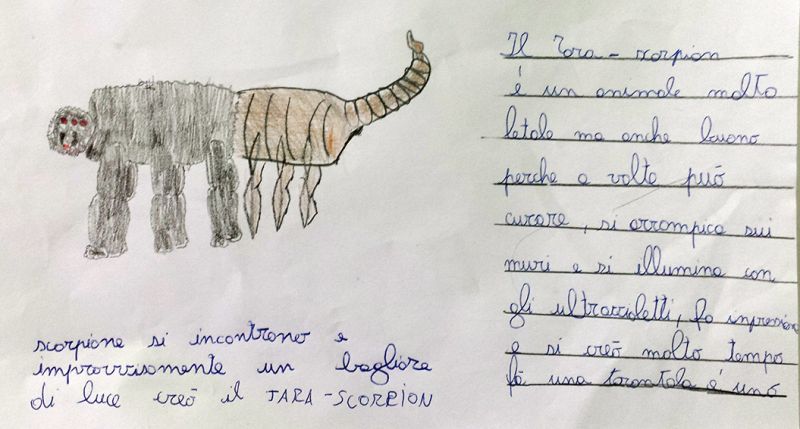 Il Tara-scorpion
é un animale molto
letale ma anche buono
perche a volte può
curare, si arrampica sui
muri e si illumina con
gli ultravioletti, fa inpressione
e si creò molto tempo
fà una tarantola é uno
scorpione si incontrono e
improvvisomente un bagliore
di luce creò il TARA-SCORPION